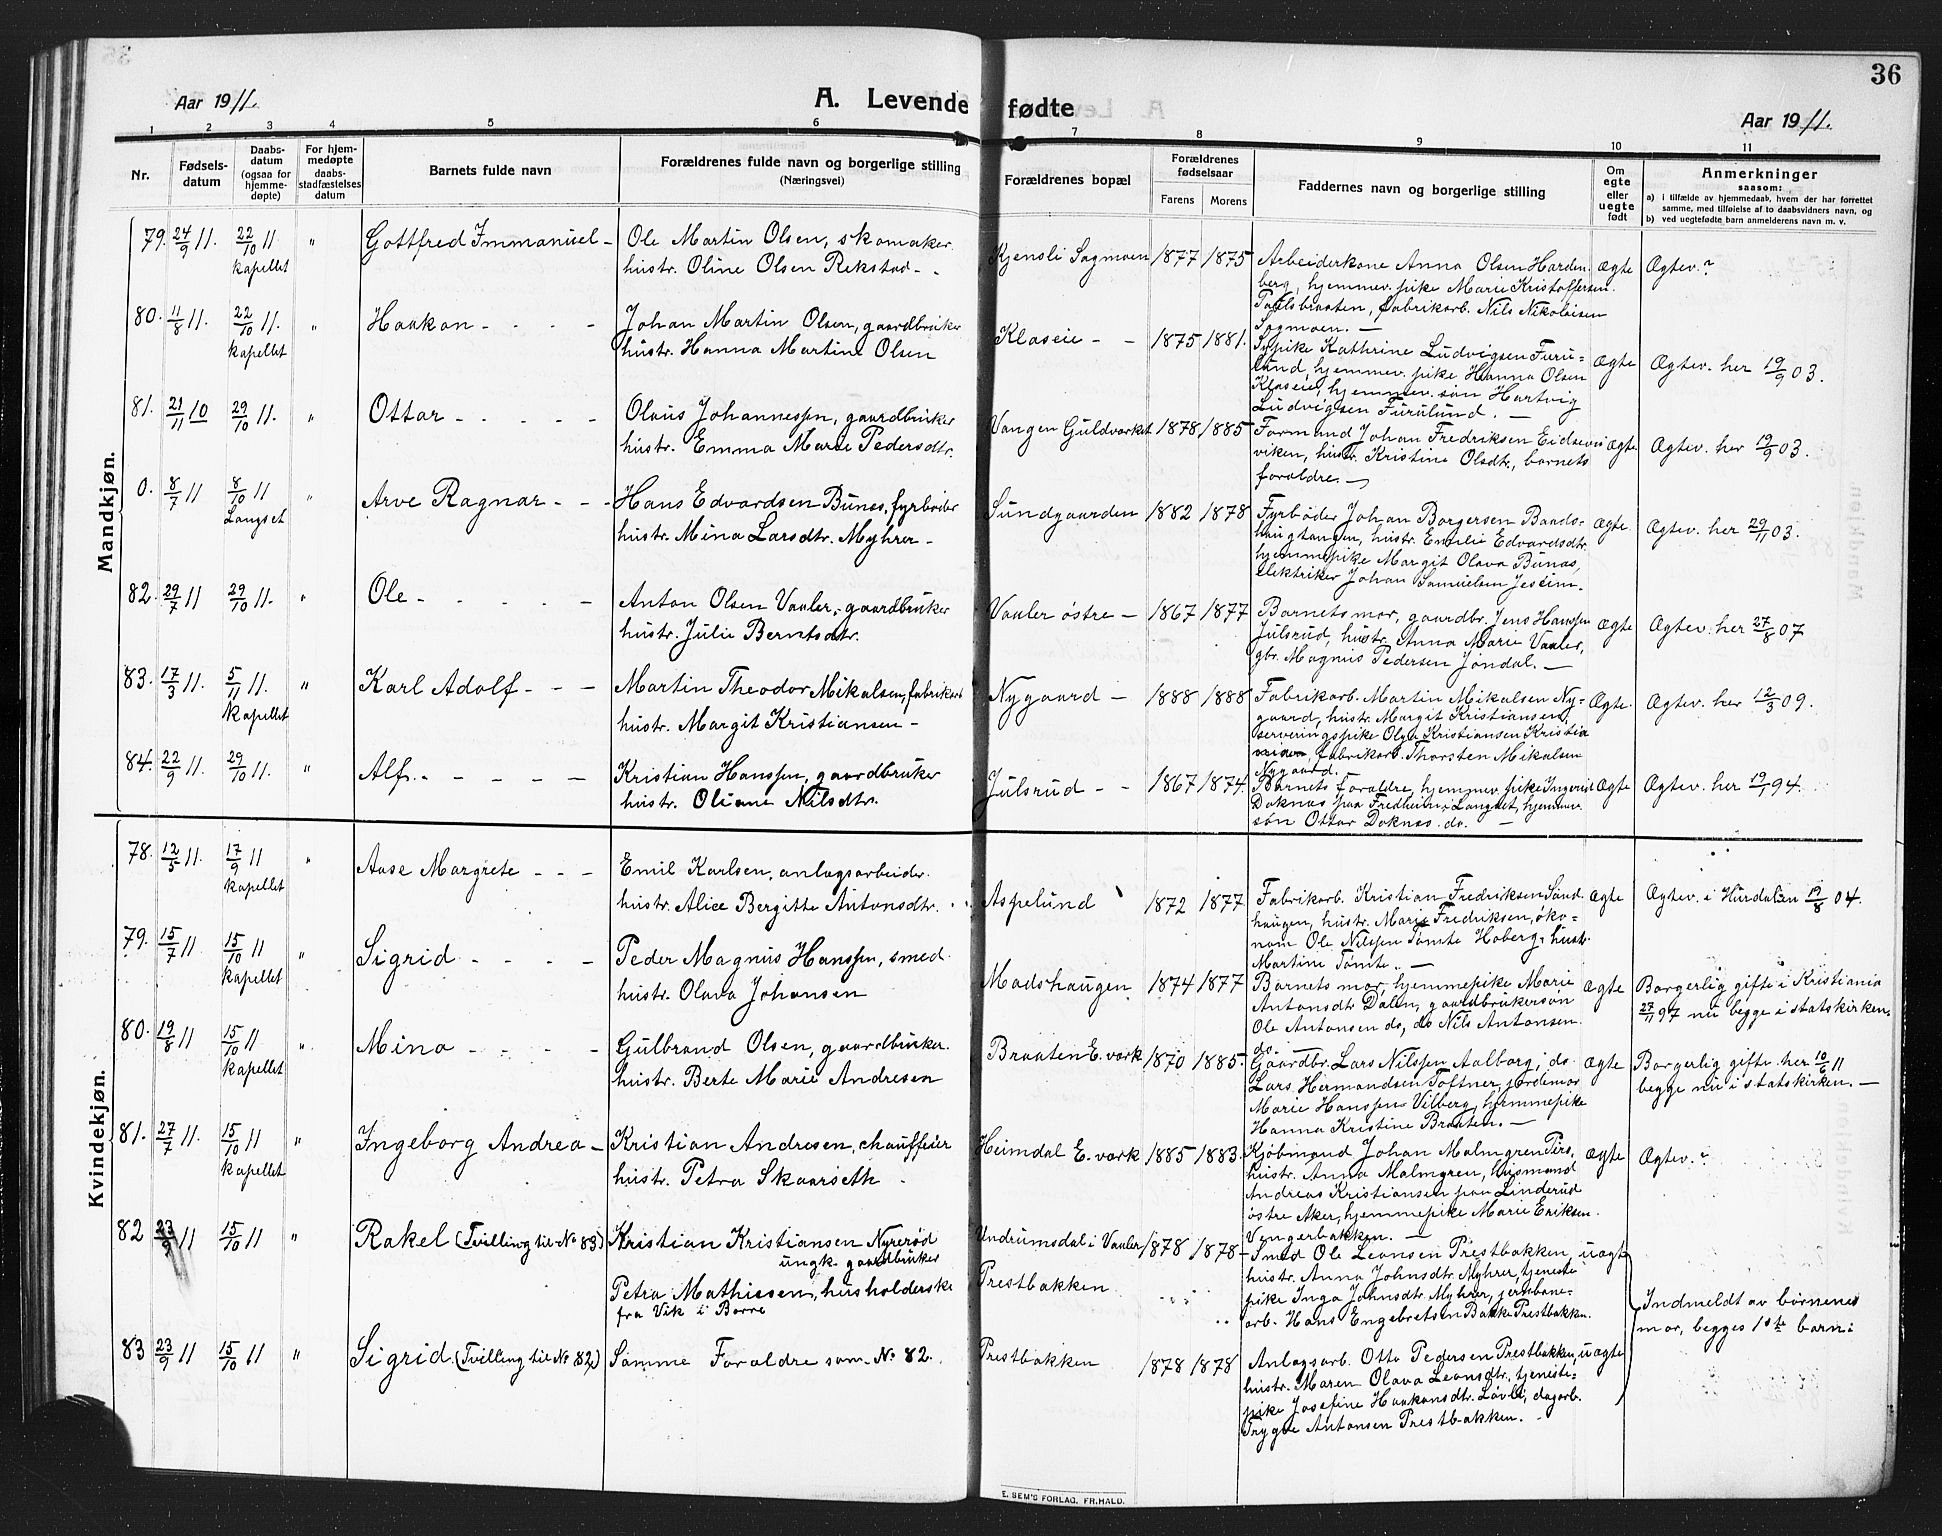 36
Aar 1911.
A. Levende fødte
Aar 1911.
1 2 3 4 5 6 7 8 9 10 11
Nr.
Fødsels-
datum
Daabs-
datum
(ogsaa for
hjemme-
døpte)
For hjem-
medøpte
daabs-
stadfæstelses
datum
Barnets fulde navn
Forældrenes fulde navn og borgerlige stilling
(Næringsvei)
Forældrenes bopæl
Forældrenes
fødselsaar
Farens Morens
Faddernes navn og borgerlige stilling
Om
egte
eller
uegte
født
Anmerkninger
saasom:
a) i tilfælde av hjemmedaab, hvem der har forrettet
samme, med tilføielse av to daabsvidners navn, og
b) ved uegtefødte barn anmelderens navn m. v.
Mandkjøn.
79. 24/9 11. 22/10 11 kapellet " Gottfred Immanuel -
Ole Martin Olsen, skomaker
hustr. Oline Olsen Rekstad - -
Kjensli Sagmoen 1877 1875
Arbeiderkone Anna Olsen Harden-
berg, hjemmev. pike Marie Kristoffersen
Paulsbraaten, fabrikarb. Nils Nikolaisen
Sagmoen. -
Ægte Ægtev.?
80. 11/8 11. 22/10 11. kapellet " Haakon - - - -
Johan Martin Olsen, gaardbruker
hustr. Hanna Martine Olsen
Klaseie - - 1875 1881.
Sypike Kathrine Ludvigsen Furu-
lund, hjemmev. pike Hanna Olsen
Klaseie, hjemmev. søn Hartvig
Ludvigsen Furulund. -
Ægte Ægtev. her 19/9 03.
81. 21/11 10 29/10 11. " Ottar - - - - -
Olaus Johannessen, gaardbruker
hustr. Emma Marie Pedersdtr.
Vangen Guldverket 1878 1885
Formand Johan Fredriksen Eidsvei
viken, hustr. Kristine Olsdtr., barnets
forældre. -
Ægte Ægtev. her 19/9 03.
0. 8/7 11 8/10 11 Langset " Arve Ragnar - - -
Hans Edvardsen Bunes, fyrbøder
hustr. Mina Larsdtr. Myhrer -
Sundgaarden 1882 1878
Fyrbøder Johan Borgersen Baads-
haugtangen, hustr. Emilie Edvardsdtr.
hjemmepike Margit Olava Bunes,
elektriker Johan Samuelsen Jesseim. -
Ægte Ægtev. her 29/11 03.
82. 29/7 11 29/10 11. " Ole - - - - -
Anton Olsen Vaaler, gaardbruker
hustr. Julie Berntsdtr.
Vaaler østre - 1867 1877
Barnets mor, gaardbr. Jens Hanssen
Julsrud, hustr. Anna Marie Vaaler,
gbr. Magnus Pedersen Jøndal. -
Ægte Ægtev. her 27/8 07
83. 17/3 11. 5/11 11. kapellet " Karl Adolf - - -
Martin Theodor Mikalsen, fabrikarb
hustr. Margit Kristiansen -
Nygaard - 1888 1888
Fabrikarb. Martin Mikalsen Ny-
gaard, hustr. Margit Kristiansen,
serveringspike Olga Kristiansen Kristia
fabrikarb. Thorsten Mikalsen
Nygaard.
Ægte. Ægtev. her 12/3 09.
84. 22/9 11. 29/10 11. " Alf. - - - - -
Kristian Hanssen, gaardbruker
hustr. Oliane Nilsdtr.
Julsrud - - 1867 1874.
Barnets forældre, hjemmev. pike Ingerid
Doknæs paa Fredheim, Langset, hjemmev.
søn Ottar Doknæs. do. -
Ægte Ægtev. her 19/1 94.
Kvindekjøn.
78. 12/5 11. 17/9 11 kapellet " Aase Margrete - - -
Emil Karlsen, anlægsarbeider.
hustr. Alice Bergitte Antonsdtr.
Aspelund 1872 1877
Fabrikarb. Kristian Fredriksen Sand-
haugen, hustr. Marie Fredriksen, øko-
nom Ole Nilssen Tømte Hoberg, hustr.
Martine Tømte. -
Ægte Ægtev. i Hurdalen 19/8 04.
79. 15/7 11 15/10 11 kapellet " Sigrid - - - -
Peder Magnus Hanssen, smed.
hustr. Olava Johansen
Madshaugen 1874 1877
Barnets mor, hjemmepike Marie
Antonsdtr Dalen, gaardbrukersøn
Ole Antonsen do, do Nils Antonsen
do.
Ægte Borgerlig gifte i Kristiania
27/11 97 nu begge i statskirken.
80. 19/8 11 15/10 11 kapellet " Mina - - - -
Gulbrand Olsen, gaardbruker.
hustr. Berte Marie Andresen
Braaten E. verk 1870 1885.
Gaardbr. Lars Nilssen Aalborg, do
Lars Hermandsen Toftner, jordemor
Marie Hanssen Vilberg, hjemmepike
Hanna Kristine Braaten. -
Ægte Borgerlig gifte her 10/6 11
begge nu i statskirken. -
81. 27/7 11. 15/10 11 kapellet " Ingeborg Andrea -
Kristian Andresen, chauffeier
hustr. Petra Skaarseth
Heimdal E. verk 1885 1883.
Kjøbmand Johan Malmgren Pers,
hustr. Anna Malmgren, husmand
Andreas Kristiansen paa Linderud
østre Aker, hjemmepike Marie Eriksen.
Vengerbakken. -
Ægte Ægtev.?
82 23/9 11 15/10 11 " Rakel (Tvilling til No 83)
Kristian Kristiansen Nyrerød
ungk. gaardbruker
Petra Mathisen, husholderske
fra Vik i Borre
Undrumsdal i Vaaler
Prestbakken
1878 1878
Smed Ole Leonsen Prestbakken,
hustr. Anna Johnsdtr. Myhrer, tjeneste-
pike Inga Johnsdtr. Myhrer, jernbane-
arb. Hans Engebretsen Bakke Prestbakken.
uægte
Indmeldt av børnenes
mor, begges 1ste barn.
83 23/9 11 15/10 11 " Sigrid (Tvilling til No 82)
Samme Forældre som No 82.
Prestbakken 1878 1878
Anlægsarb. Otto Pedersen Prestbakken,
hustr. Maren Olava Leonsdtr. tjeneste-
pike Josefine Haakonsdtr. Løvli, dagarb.
Trygve Antonsen Prestbakken.
uægte
E. SEM'S FORLAG, FR.HALD.